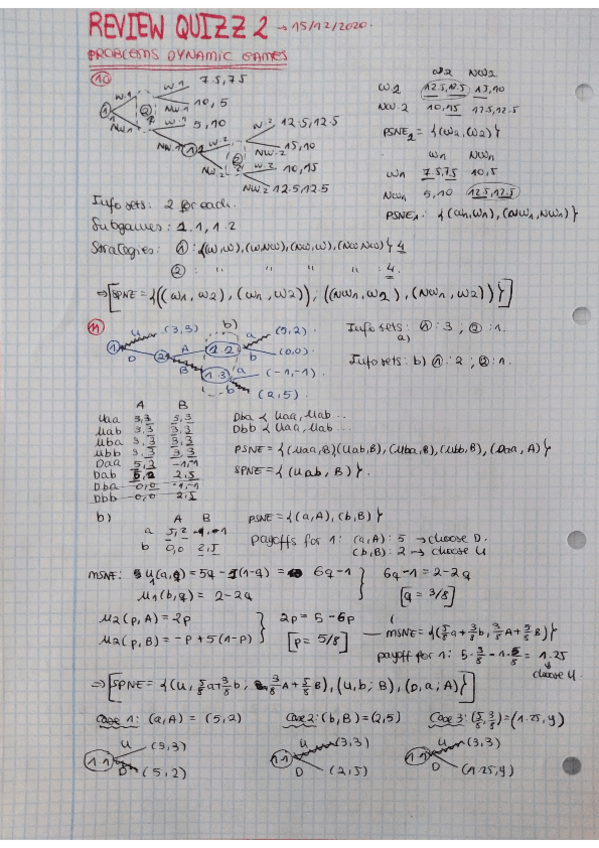 REVIEW QUIZZ 2 → 15/12/2020.
PROBLEMS DYNAMIC GAMES
10
W.1 7.5,7.5
W.1 NW.1 10,5
NW.1 W.1 5,10
NW.1 W.2 W.2 12.5,12.5
NW.2 15,10
NW.2 W.2 10,15
NW.2 12.5,12.5
W2 NW2
W.2 12.5,12.5 15,10
NW.2 10,15 12.5,12.5
PSNE2 = {(W2,W2)}
W1 NW1
W1 7.5,7.5 10,5
NW1 5,10 12.5,12.5
PSNE1: {(W1,W1),(NW1,NW1)}
Info sets: 2 for each.
Subgames: 1.1, 1.2
Strategies: 1: {(W,W),(W,NW),(NW,W),(NW,NW)} 4
2: " " " " = 4.
⇒ [SPNE = {((W1,W2),(W1,W2)); ((NW1,W2),(NW1,W2))}]
11
U (3,3)
1 D 2 A 1.2 a (5,2).
b (0,0)
B 1.3 a (-1,-1)
b (2,5)
b)
Info sets: 1: 3; 2: 1.
a)
Info sets: b) 1: 2; 2: 1.
A B
Uaa 3,3 3,3
Uab 3,3 3,3
Uba 3,3 3,3
Ubb 3,3 3,3
Daa 5,2 -1,-1
Dab 5,2 2,5
Dba 0,0 -1,-1
Dbb 0,0 2,5
Dba < Uaa, Uab...
Dbb < Uaa, Uab...
PSNE = {(Uaa,B)(Uab,B),(Uba,B),(Ubb,B),(Daa,A)}
SPNE = {(Uab, B)}.
b) A B
a 5,2 -1,-1
b 0,0 2,5
PSNE = {(a,A),(b,B)}
Payoffs for 1: (a,A): 5 → choose D.
(b,B): 2 → choose U
MSNE: U1(a,q) = 5q - 1(1-q) = 6q-1
U1(b,q) = 2-2q
6q-1 = 2-2q
[q = 3/8]
U2(p,A) = 2p
U2(p,B) = -p + 5(1-p)
2p = 5-6p
[p = 5/8]
MSNE = {(5/8a + 3/8b, 3/8A + 5/8B)}
payoff for 1: 5·3/8 - 1·5/8 = 1.25
choose U.
⇒ [SPNE = {(U, 5/8a+3/8b; 3/8A + 5/8B), (U,b; B), (D,a; A)}]
Case 1: (a,A) = (5,2) Case 2: (b,B) = (2,5) Case 3: (5/8, 3/8) = (1.25, y)
1.1 U (3,3) D (5,2)
1.1 U (3,3) D (2,5)
1.1 U (3,3) D (1.25,y)